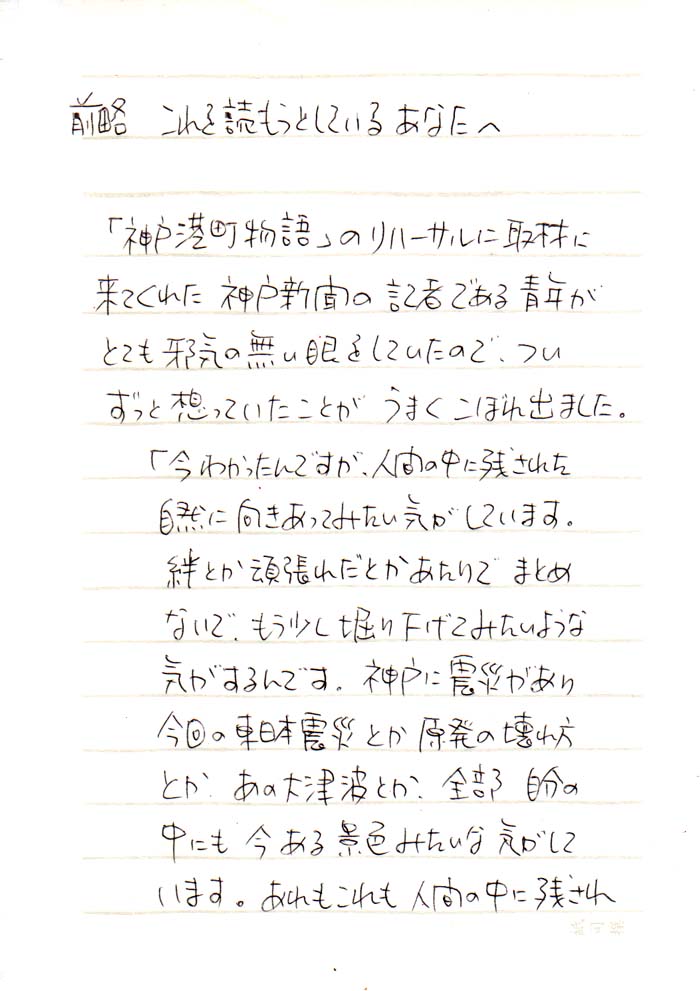 前略 これを読もうとしているあなたへ
「神戸港町物語」のリハーサルに取材に
来てくれた 神戸新聞の 記者である 青年が
とても 邪気の無い眼をしていたので、つい
ずっと想っていたことが うまくこぼれ出ました。
「今わかったんですが、人間の中に残された
自然に向きあってみたい気がしています。
絆とか頑張れだとかあたりで まとめ
ないで、もう少し堀り下げてみたいような
気がするんです。神戸に震災があり
今回の東日本震災とか原発の壊れ方
とか、あの大津波とか、全部 自分の
中にも 今ある景色みたいな気がして
います。あれもこれも 人間の中に残され